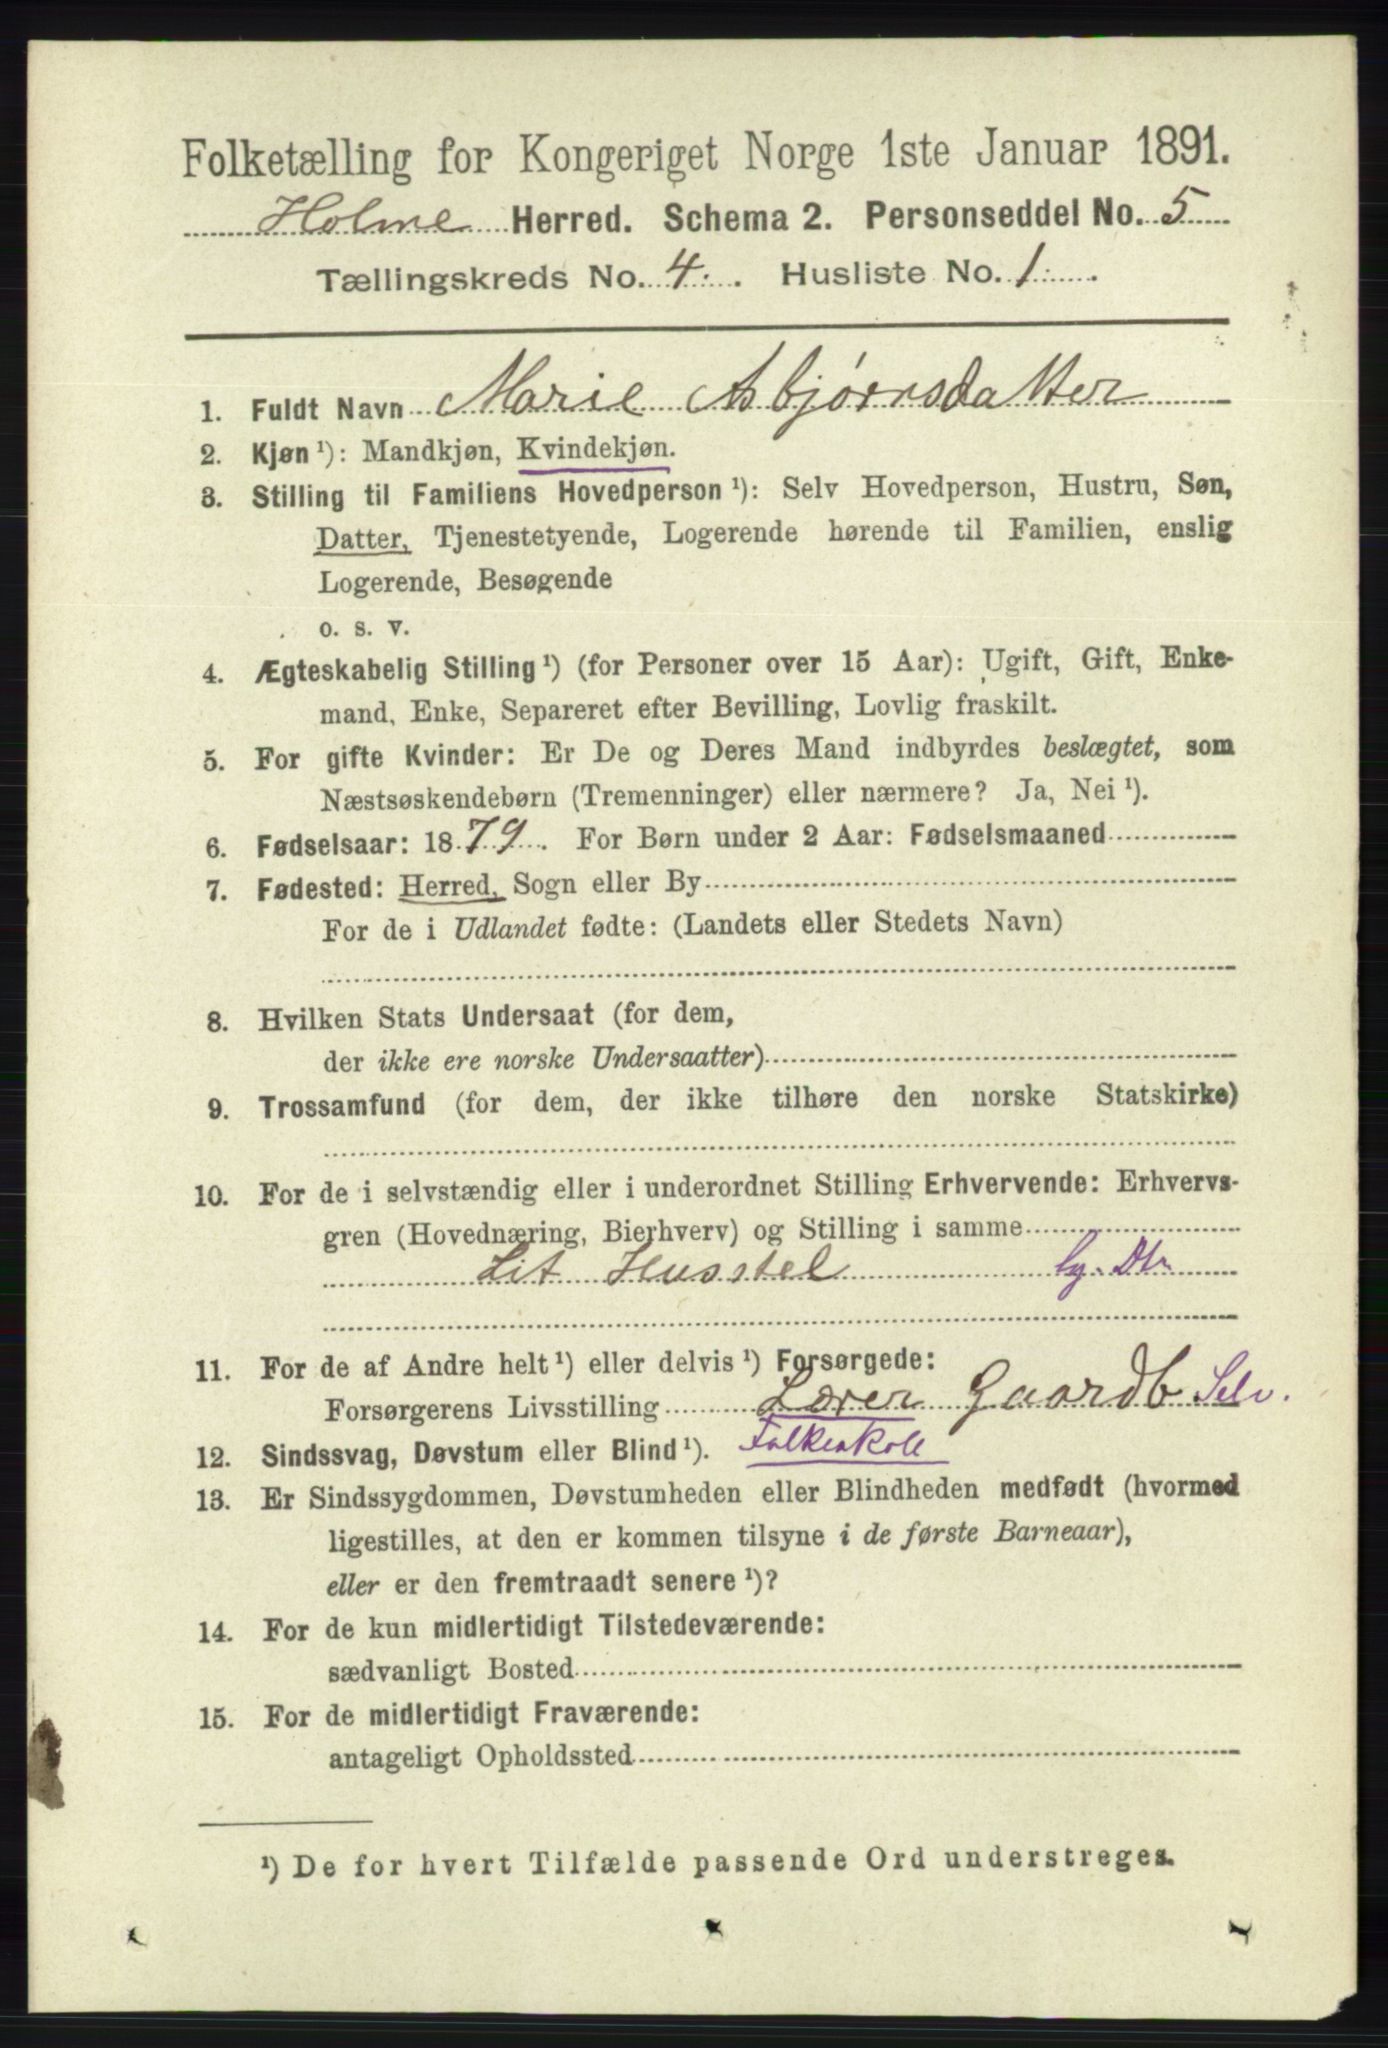 Folketælling for Kongeriget Norge 1ste Januar 1891.
Holme Herred. Schema 2. Personseddel No. 5
Tællingskreds No. 4. Husliste No. 1
1. Fuldt Navn Marie Asbjørnsdatter
2. Kjøn ¹): Mandkjøn, Kvindekjøn.
3. Stilling til Familiens Hovedperson ¹): Selv Hovedperson, Hustru, Søn,
Datter, Tjenestetyende, Logerende hørende til Familien, enslig
Logerende, Besøgende
o. s. v.
4. Ægteskabelig Stilling ¹) (for Personer over 15 Aar): Ugift, Gift, Enke-
mand, Enke, Separeret efter Bevilling, Lovlig fraskilt.
5. For gifte Kvinder: Er De og Deres Mand indbyrdes beslægtet, som
Næstsøskendebørn (Tremenninger) eller nærmere? Ja, Nei ¹).
6. Fødselsaar: 1879. For Børn under 2 Aar: Fødselsmaaned
7. Fødested: Herred, Sogn eller By
For de i Udlandet fødte: (Landets eller Stedets Navn)
8. Hvilken Stats Undersaat (for dem,
der ikke ere norske Undersaatter)
9. Trossamfund (for dem, der ikke tilhøre den norske Statskirke)
10. For de i selvstændig eller i underordnet Stilling Erhvervende: Erhvervs-
gren (Hovednæring, Bierhverv) og Stilling i samme
Lit Husstel Dtr
11. For de af Andre helt ¹) eller delvis ¹) Forsørgede:
Forsørgerens Livsstilling Lærer Gaardb Selv.
12. Sindssvag, Døvstum eller Blind ¹). Folkeskole
13. Er Sindssygdommen, Døvstumheden eller Blindheden medfødt (hvormed
ligestilles, at den er kommen tilsyne i de første Barneaar),
eller er den fremtraadt senere ¹)?
14. For de kun midlertidigt Tilstedeværende:
sædvanligt Bosted
15. For de midlertidigt Fraværende:
antageligt Opholdssted
¹) De for hvert Tilfælde passende Ord understreges.